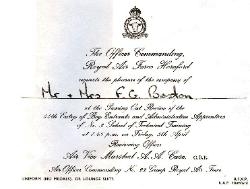 The Officer Commanding,
Royal Air Force Hereford
requests the pleasure of the company of
Mr & Mrs F. G. Boston
at the Passing Out Review of the
45th Entry of Boy Entrants and Administrative Apprentices
of No. 3 School of Technical Training
at 1.45 p.m. on Friday, 5th April
Reviewing Officer
Air Vice Marshal A. A. Case, C.B.E.
Air Officer Commanding No. 22 Group Royal Air Force
UNIFORM (NO MEDALS) OR LOUNGE SUITS.
R.S.V.P.